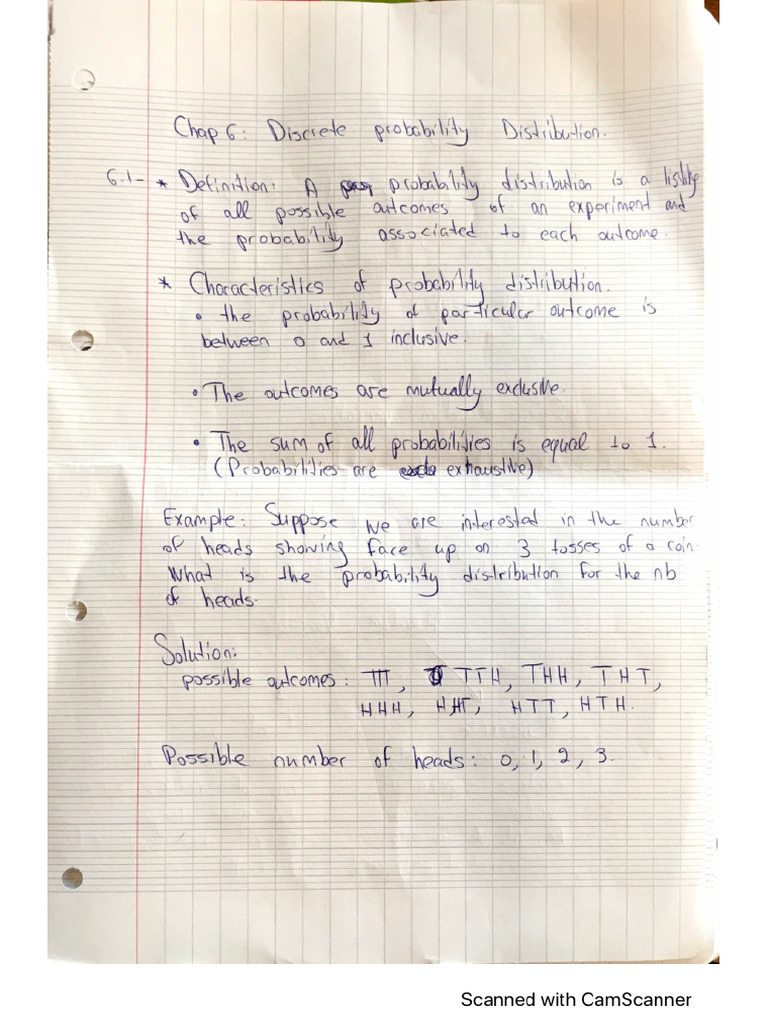 Chap 6: Discrete probability Distribution.
6.1- * Definition: A probability distribution is a listing
of all possible outcomes of an experiment and
the probability associated to each outcome.
* Characteristics of probability distribution.
• the probability of particular outcome is
between 0 and 1 inclusive.
• The outcomes are mutually exclusive.
• The sum of all probabilities is equal to 1.
(Probabilities are exhaustive)
Example: Suppose we are interested in the number
of heads showing face up on 3 tosses of a coin.
What is the probability distribution for the nb
of heads.
Solution:
possible outcomes: TTT, TTH, THH, THT,
HHH, HHT, HTT, HTH.
Possible number of heads: 0, 1, 2, 3.
Scanned with CamScanner